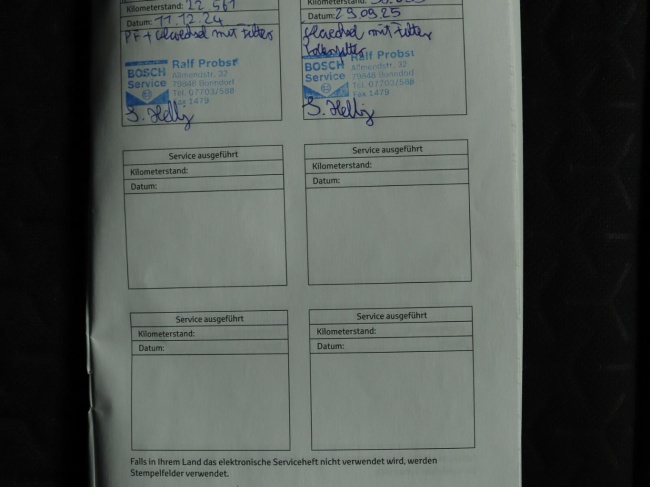 Kilometerstand: 22 561
Datum: 11.12.24
PF + Ölwechsel mit Filter
BOSCH
Service
Ralf Probst
Allmendstr. 32
79848 Bonndorf
Tel. 07703/588
Fax 1479
Kilometerstand:
Datum: 29.09.25
Ölwechsel mit Filter
BOSCH
Service
Ralf Probst
Allmendstr. 32
79848 Bonndorf
Tel. 07703/588
Fax 1479
Service ausgeführt
Kilometerstand:
Datum:
Service ausgeführt
Kilometerstand:
Datum:
Service ausgeführt
Kilometerstand:
Datum:
Service ausgeführt
Kilometerstand:
Datum:
Falls in Ihrem Land das elektronische Serviceheft nicht verwendet wird, werden
Stempelfelder verwendet.